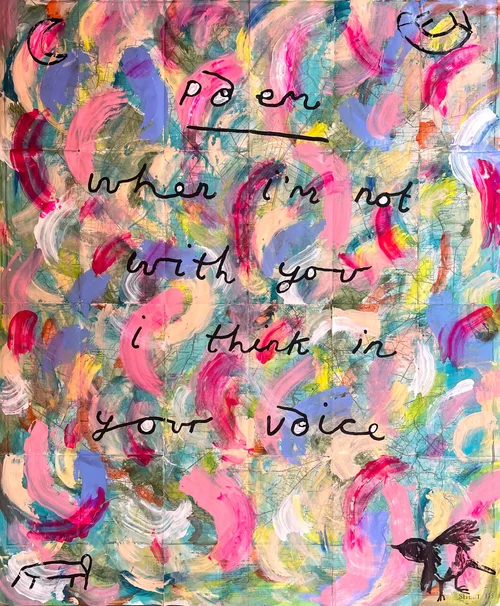 poem
when i'm not
with you
i think in
your voice